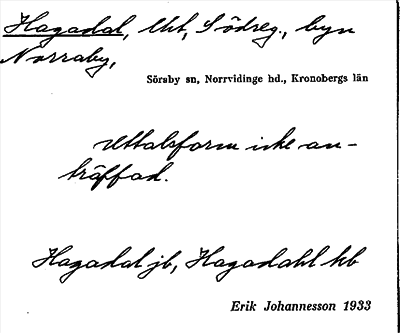 Hagadal, lht, Södreg., byn
Norraby,
Söraby sn, Norrvidinge hd., Kronobergs län
Uttalsform icke an-
träffad.
Hagadal jb, Hagadahl kb
Erik Johannesson 1933